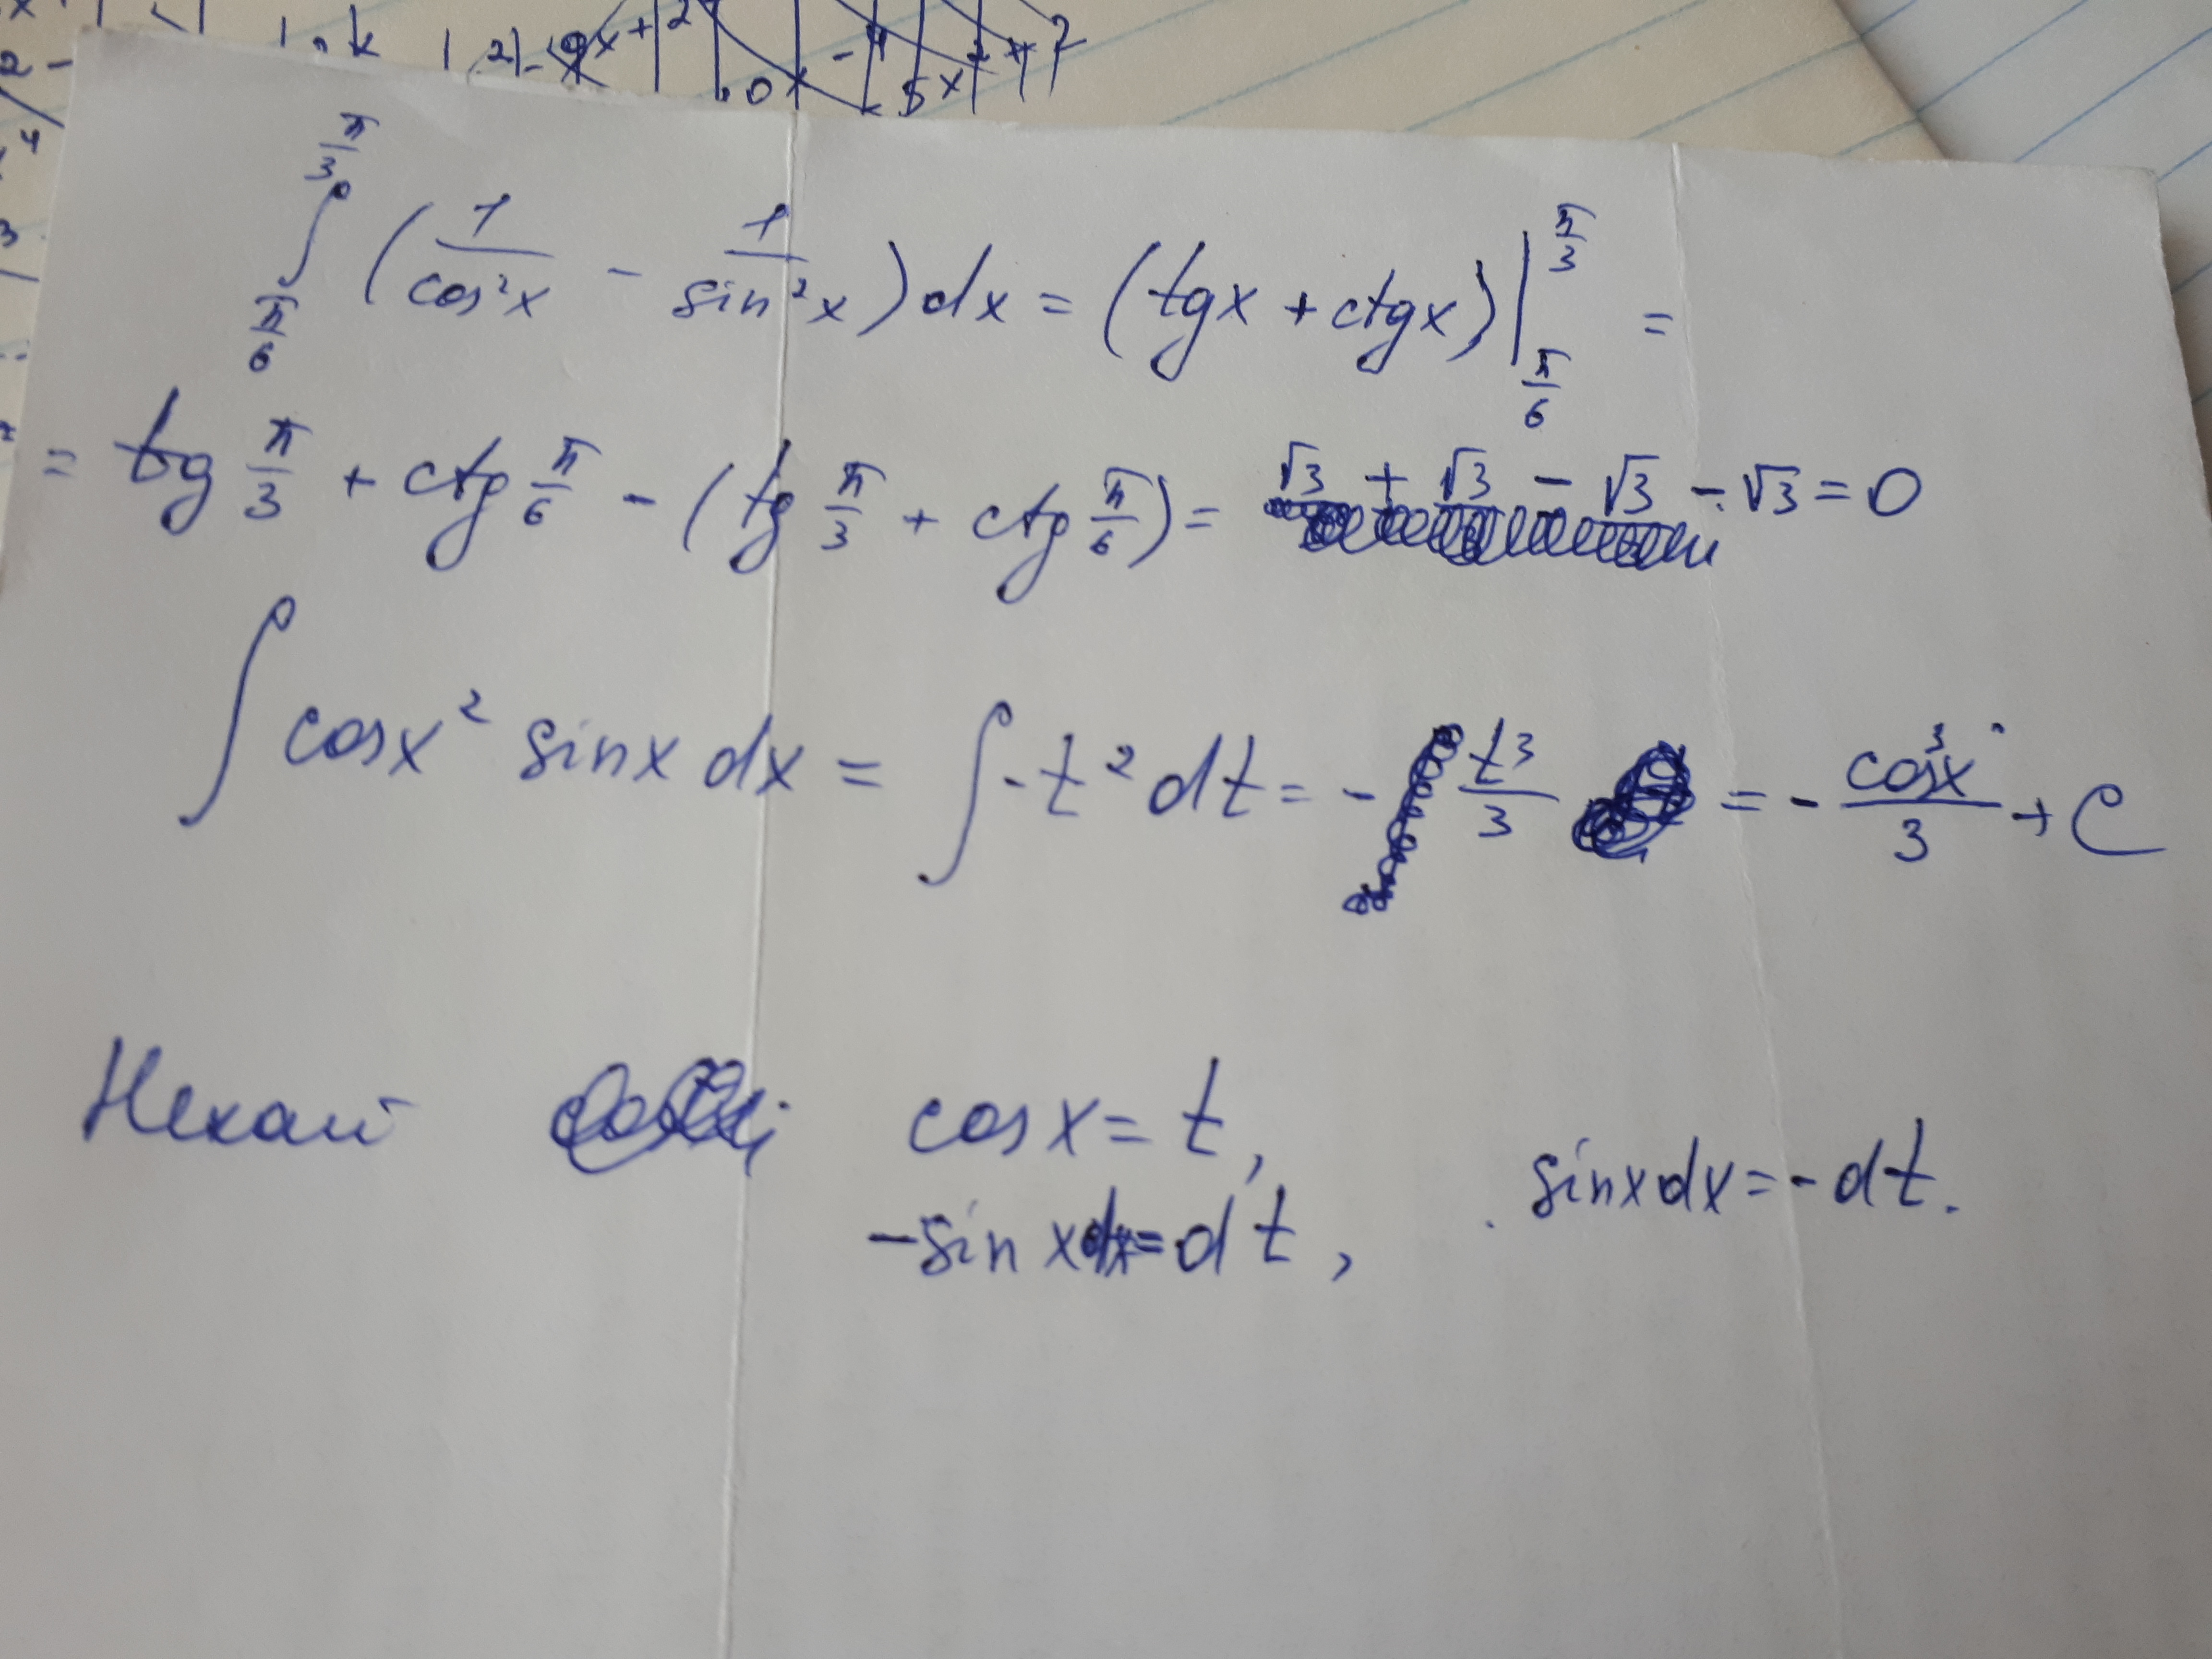 π/3 ∫ π/6 (1/cos²x - 1/sin²x) dx = (tgx + ctgx) | π/3 π/6 =
= tg π/3 + ctg π/6 - (tg π/3 + ctg π/6) = √3 + √3 - √3 - √3 = 0
∫ cosx² sinx dx = ∫ -t² dt = - t³/3 = - cos³x/3 + C
Нехай cosx = t,
-sinxdx = dt, sinxdx = -dt.